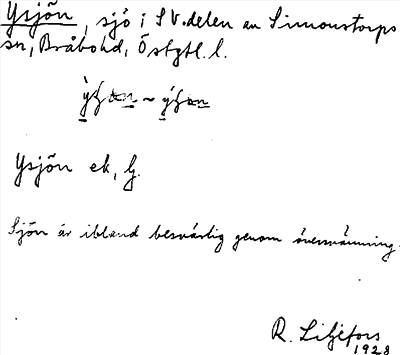 Ysjön, sjö i SV.delen av Simonstorps
sn, Bråbohd, Östgtl. l.
Ysjön ek, G.
Sjön är ibland besvärlig genom översvämning.
R. Liljefors
1928